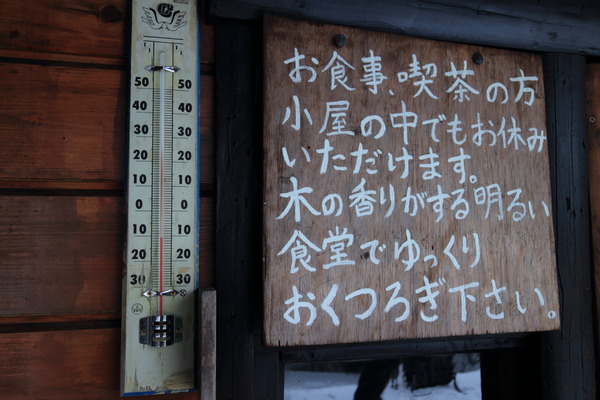 お食事、喫茶の方
小屋の中でもお休み
いただけます。
木の香りがする明るい
食堂でゆっくり
おくつろぎ下さい。
50 50
40 40
30 30
20 20
10 10
0 0
10 10
20 20
30 30